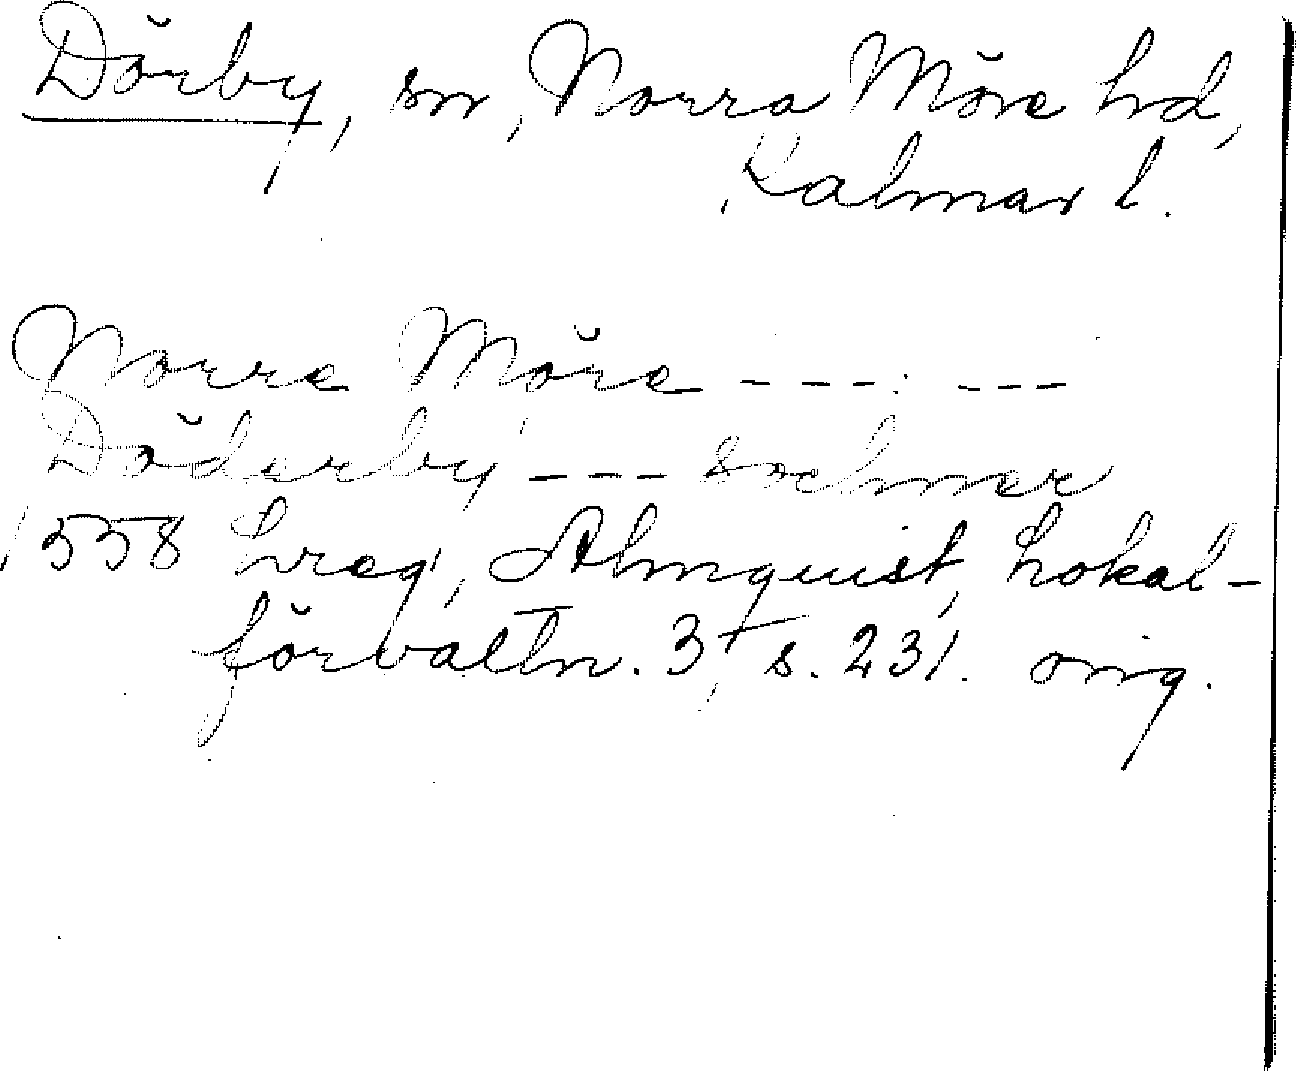 Dörby, sn, Norra Möre hd,
Kalmar l.
Norre Möre ----: ---
Döderby --- sochner
1558 Lreg, Almquist, Lokal-
förvaltn. 3, s. 231. orig.